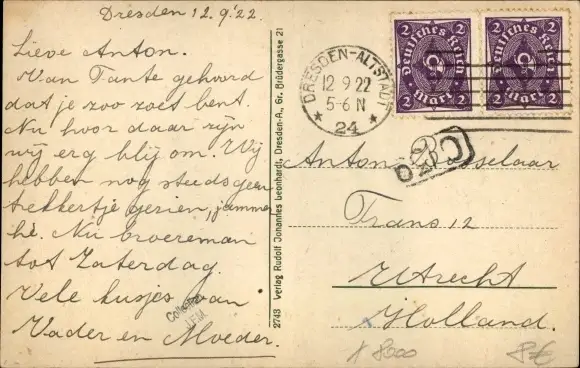 Dresden 12.9.'22.
Lieve Anton.
Van Tante gehoord
dat je zoo zoet bent.
Nu hoor daar zijn
wij erg blij om. Wij
hebben nog steeds geen
trekkertje gezien, jammer
hè. Nu broereman
tot Zaterdag.
Vele kusjes van
Vader en Moeder.
2743 Verlag Rudolf Johannes Leonhardt, Dresden-A., Gr. Brüdergasse 21
DRESDEN-ALTSTADT
12 9 22
5-6 N
* 24 *
2 Deutsches Reich 2
2 Mark 2
2 Deutsches Reich 2
2 Mark 2
Anton
Trans 12
Utrecht
Holland.
Collectie
8000
8€